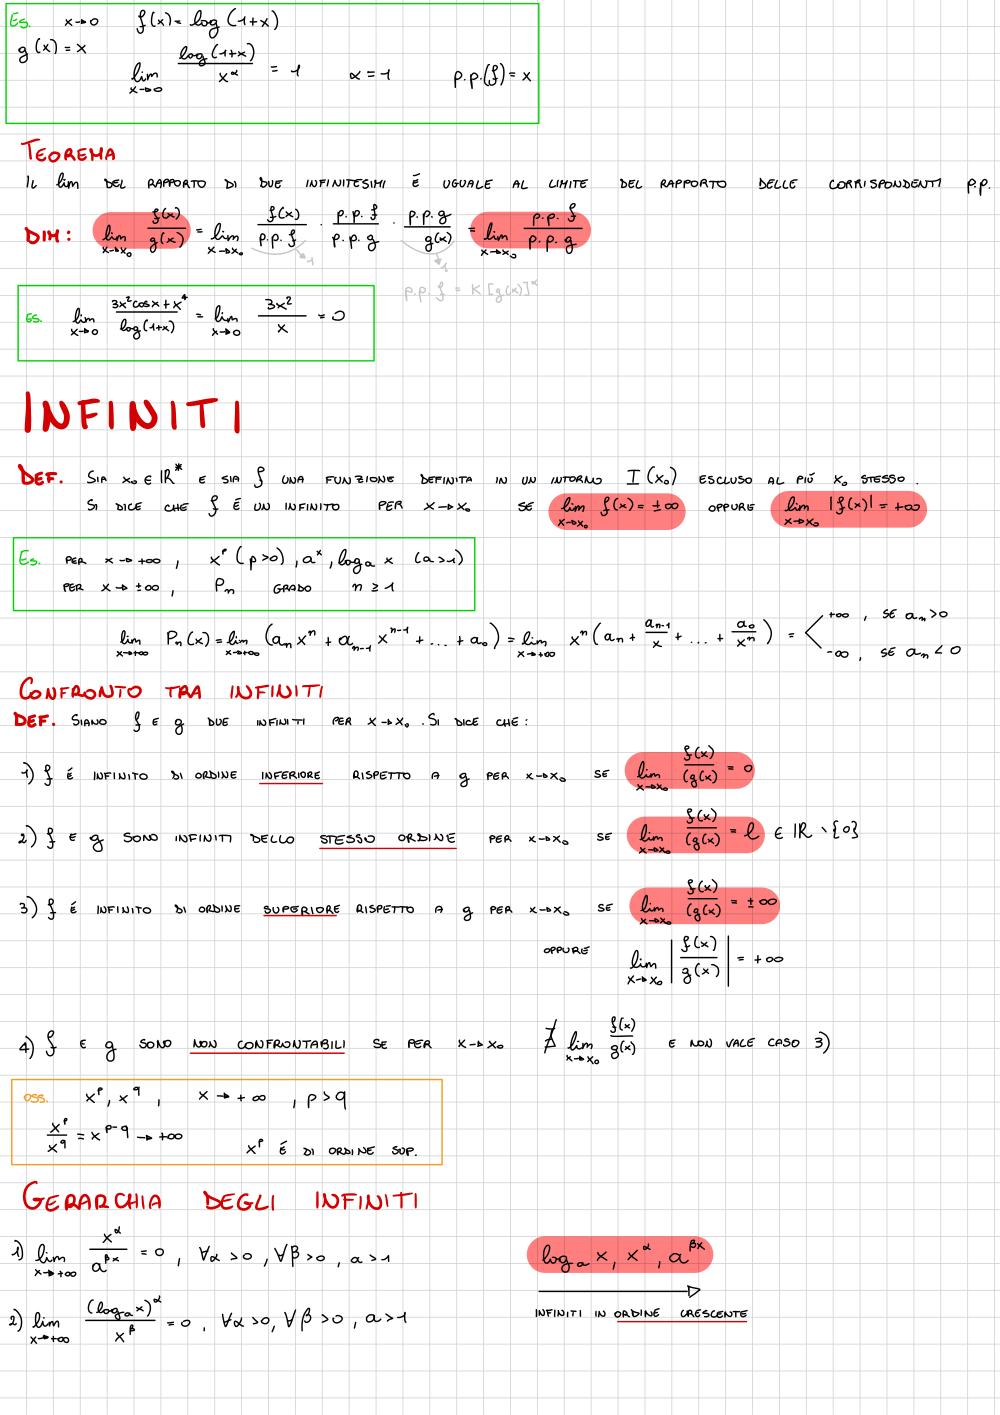 Es. x→0 f(x) = log (1+x)
g(x) = x
lim x→0 log(1+x) / x^α = 1 α = 1 p.p.(f) = x
TEOREMA
IL lim DEL RAPPORTO DI DUE INFINITESIMI É UGUALE AL LIMITE DEL RAPPORTO DELLE CORRISPONDENTI P.P.
DIM: lim x→x₀ f(x)/g(x) = lim x→x₀ f(x)/p.p. f · p.p. f/p.p. g · p.p. g/g(x) = lim x→x₀ p.p. f/p.p. g
→1 →1
p.p. f = K [g(x)]^α
Es. lim x→0 (3x² cosx + x⁴)/log(1+x) = lim x→0 3x²/x = 0
INFINITI
DEF. SIA x₀ ∈ IR* E SIA f UNA FUNZIONE DEFINITA IN UN INTORNO I(x₀) ESCLUSO AL PIÚ x₀ STESSO.
SI DICE CHE f É UN INFINITO PER x→x₀ SE lim x→x₀ f(x) = ±∞ OPPURE lim x→x₀ |f(x)| = +∞
Es. PER x→+∞, x^p (p>0), a^x, log_a x (a>1)
PER x→±∞, P_n GRADO n ≥ 1
lim x→+∞ P_n(x) = lim x→+∞ (a_n x^n + a_{n-1} x^{n-1} + ... + a₀) = lim x→+∞ x^n (a_n + a_{n-1}/x + ... + a₀/x^n) = < +∞, SE a_n > 0
-∞, SE a_n < 0
CONFRONTO TRA INFINITI
DEF. SIANO f E g DUE INFINITI PER x→x₀. SI DICE CHE:
1) f É INFINITO DI ORDINE INFERIORE RISPETTO A g PER x→x₀ SE lim x→x₀ f(x)/(g(x) = 0
2) f E g SONO INFINITI DELLO STESSO ORDINE PER x→x₀ SE lim x→x₀ f(x)/(g(x) = l ∈ IR \ {0}
3) f É INFINITO DI ORDINE SUPERIORE RISPETTO A g PER x→x₀ SE lim x→x₀ f(x)/(g(x) = ±∞
OPPURE lim x→x₀ |f(x)/g(x)| = +∞
4) f E g SONO NON CONFRONTABILI SE PER x→x₀ ∄ lim x→x₀ f(x)/g(x) E NON VALE CASO 3)
OSS. x^p, x^q, x→+∞, p>q
x^p/x^q = x^{p-q} → +∞ x^p É DI ORDINE SUP.
GERARCHIA DEGLI INFINITI
1) lim x→+∞ x^α/a^{βx} = 0, ∀α>0, ∀β>0, a>1
log_a x, x^α, a^{βx}
INFINITI IN ORDINE CRESCENTE
2) lim x→+∞ (log_a x)^α/x^β = 0, ∀α>0, ∀β>0, a>1